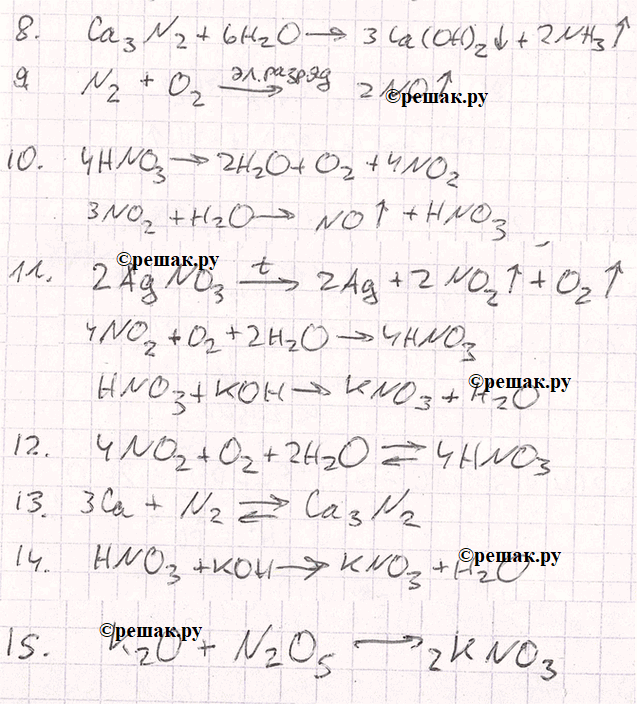 8. Ca₃N₂ + 6H₂O → 3Ca(OH)₂↓ + 2NH₃↑
9 N₂ + O₂ эл.разряд → 2NO↑
©решак.ру
10. 4HNO₃ → 2H₂O + O₂ + 4NO₂
3NO₂ + H₂O → NO↑ + HNO₃
©решак.ру
11. 2AgNO₃ t → 2Ag + 2NO₂↑ + O₂↑
4NO₂ + O₂ + 2H₂O → 4HNO₃
©решак.ру
HNO₃ + KOH → KNO₃ + H₂O
12. 4NO₂ + O₂ + 2H₂O ⇄ 4HNO₃
13. 3Ca + N₂ ⇄ Ca₃N₂
©решак.ру
14. HNO₃ + KOH → KNO₃ + H₂O
©решак.ру
15. K₂O + N₂O₅ → 2KNO₃